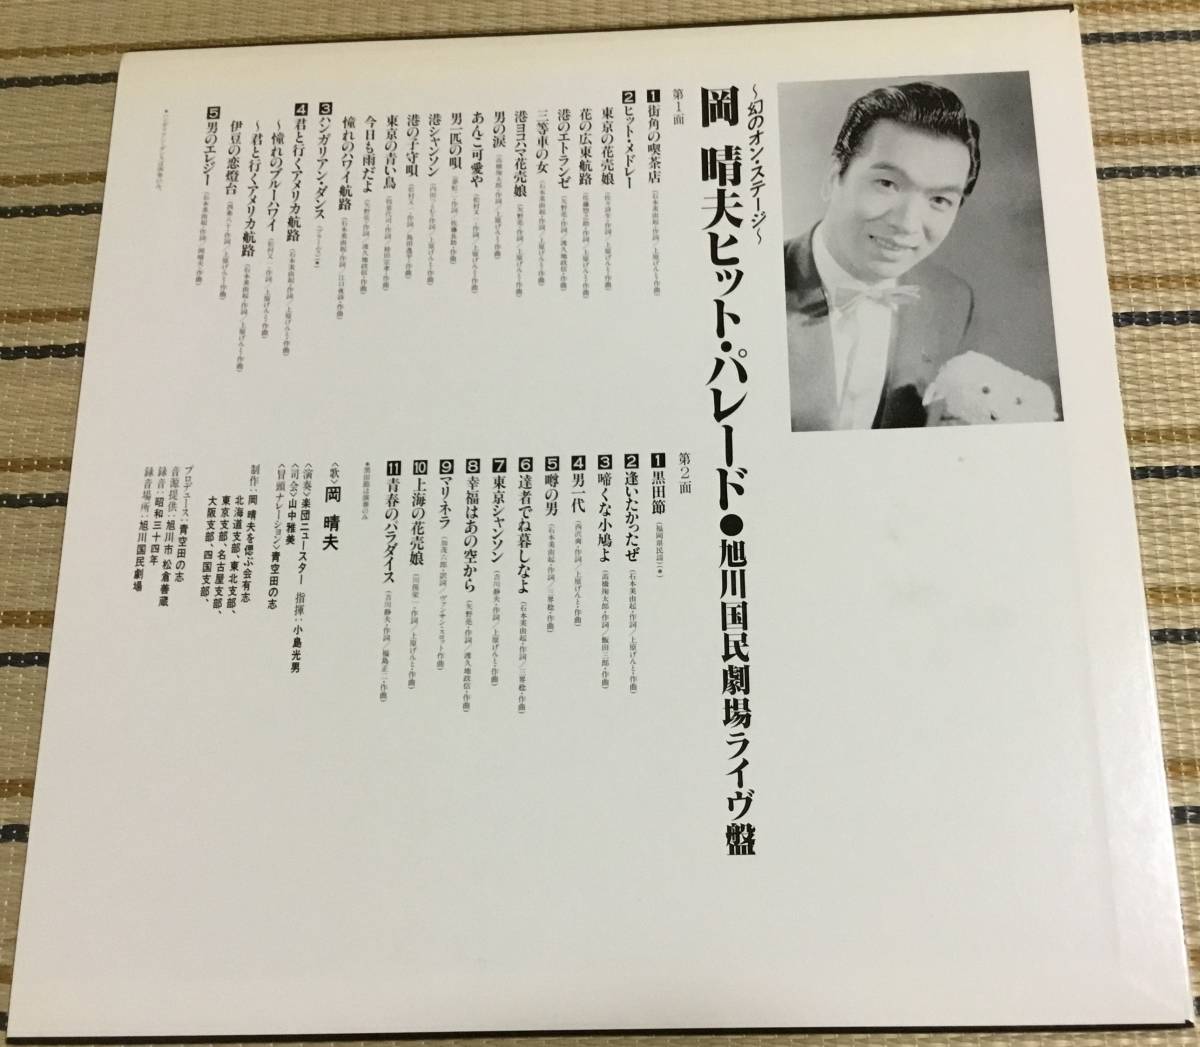 〜幻のオン・ステージ〜
岡 晴夫ヒット・パレード●旭川国民劇場ライヴ盤
第1面
1 街角の喫茶店(石本美由起・作詞/上原げんと・作曲)
2 ヒット・メドレー
東京の花売娘(佐々詩生・作詞/上原げんと・作曲)
花の広東航路(佐藤惣之助・作詞/上原げんと・作曲)
港のエトランゼ(矢野亮・作詞/渡久地政信・作曲)
三等車の女
港ヨコハマ花売娘(矢野亮・作詞/上原げんと・作曲)
男の涙(高橋掬太郎・作詞/上原げんと・作曲)
あんこ可愛や(松村又一・作詞/上原げんと・作曲)
男一匹の唄(夢虹二・作詞/佐藤長助・作曲)
港シャンソン(内田つとむ・作詞/上原げんと・作曲)
港の子守唄(松村又一・作詞/島田逸平・作曲)
東京の青い鳥
今日も雨だよ(矢野亮・作詞/渡久地政信・作曲)
憧れのハワイ航路(石本美由起・作詞/江口夜詩・作曲)
3 ハンガリアン・ダンス(ブラームス)(*)
4 君と行くアメリカ航路(石本美由起・作詞/上原げんと・作曲)
〜憧れのブルーハワイ(松村又一・作詞/上原げんと・作曲)
〜君と行くアメリカ航路(石本美由起・作詞/上原げんと・作曲)
伊豆の恋燈台(西條八十・作詞/上原げんと・作曲)
5 男のエレジー(石本美由起・作詞/岡晴夫・作曲)
第2面
1 黒田節(福岡県民謡)(*)
2 逢いたかったぜ(石本美由起・作詞/上原げんと・作曲)
3 啼くな小鳩よ(高橋掬太郎・作詞/飯田三郎・作曲)
4 男一代(西沢爽・作詞/上原げんと・作曲)
5 噂の男(石本美由起・作詞/三界稔・作曲)
6 達者でね暮しなよ(石本美由起・作詞/三界稔・作曲)
7 東京シャンソン(吉川静夫・作詞/上原げんと・作曲)
8 幸福はあの空から(矢野亮・作詞/渡久地政信・作曲)
9 マリネラ(加茂六郎・訳詞/ヴァンサン・スコット作曲)
10 上海の花売娘(川俣栄一・作詞/上原げんと・作曲)
11 青春のパラダイス(吉川静夫・作詞/福島正二・作曲)
*黒田節は演奏のみ
〈歌〉岡 晴夫
〈演奏〉楽団ニュースター 指揮:小島光男
〈司会〉山中雅美
〈冒頭ナレーション〉青空田の志
制作:岡 晴夫を偲ぶ会有志
北海道支部、東北支部、
東京支部、名古屋支部、
大阪支部、四国支部、
プロデュース:青空田の志
音源提供:旭川市 松倉善蔵
録音:昭和三十四年
録音場所:旭川国民劇場